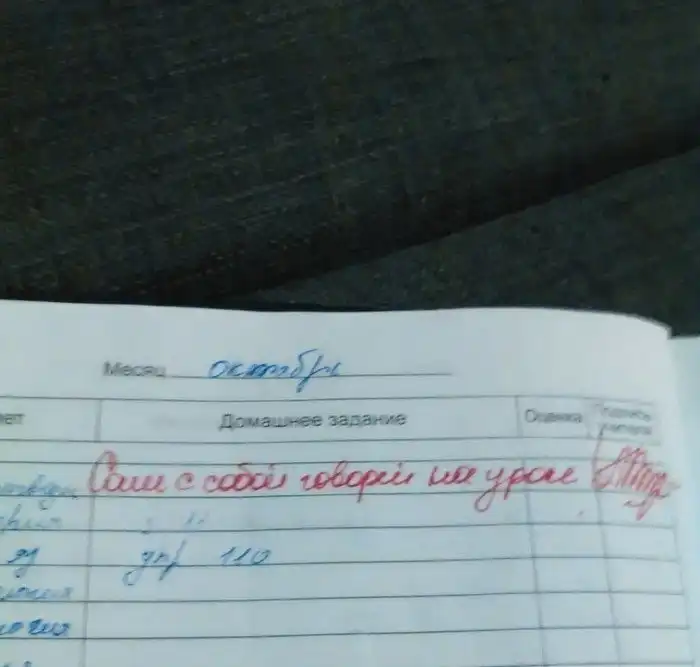 Месяц октябрь
Домашнее задание Оценка Подпись учителя
Сам с собой говорил на уроке
упр 110
яз